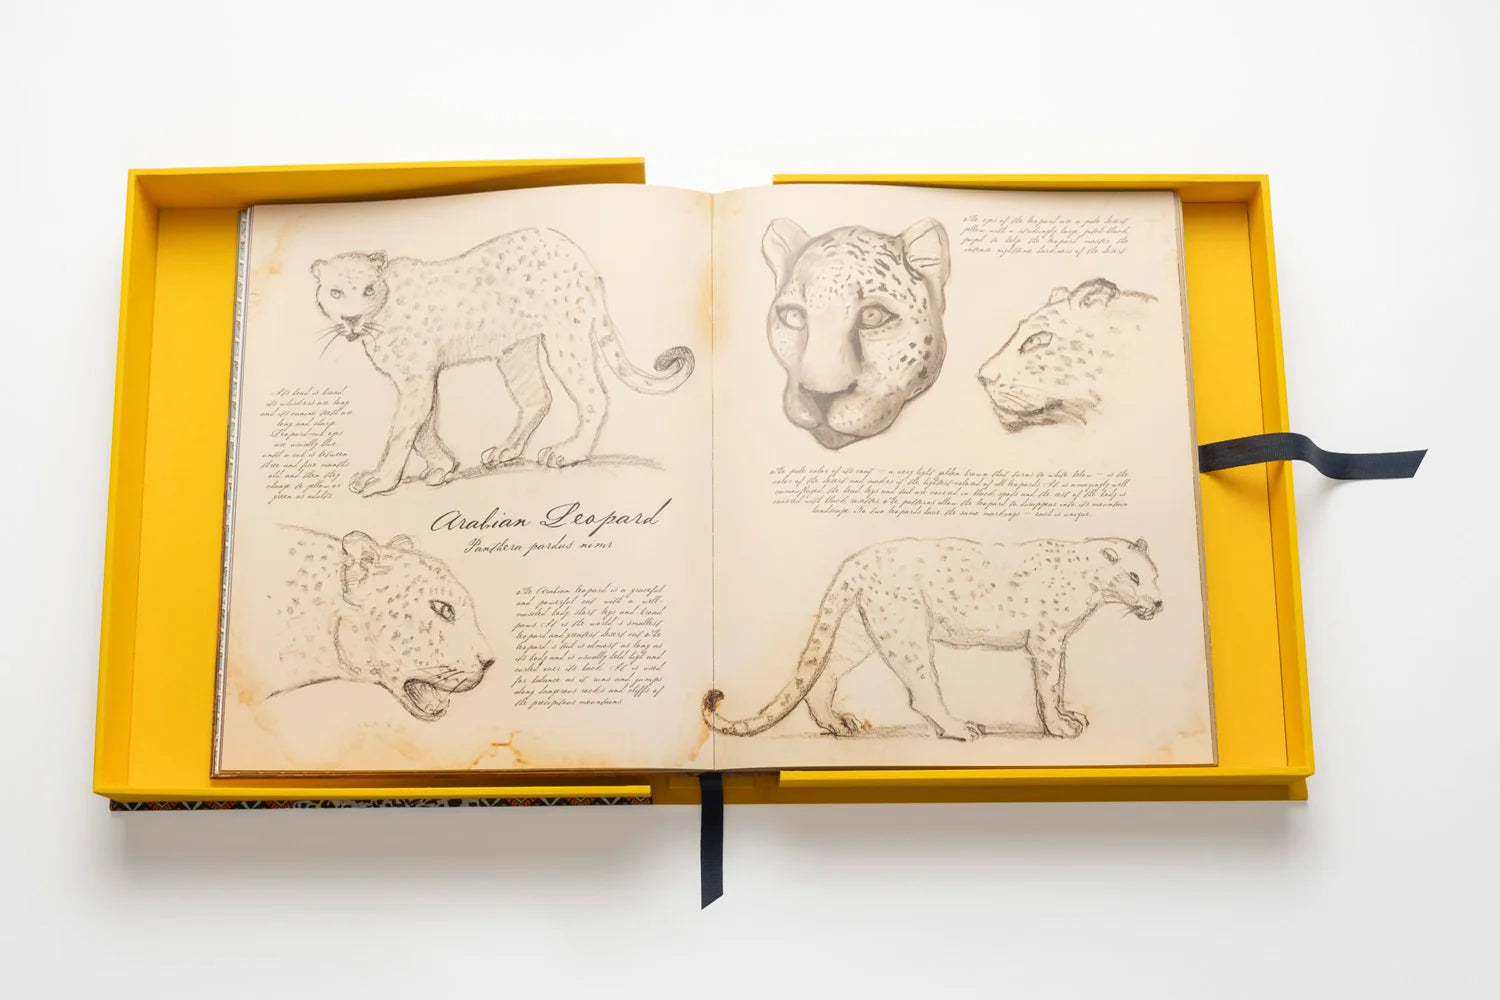 Its head is broad,
its whiskers are long
and its canine teeth are
long and sharp.
Leopard cub eyes
are usually blue
until a cub is between
three and five months
old and then they
change to yellow or
green as adults.
Arabian Leopard
Panthera pardus nimr
The Arabian leopard is a graceful
and powerful cat with a well-
muscled body, short legs and broad
paws. It is the world's smallest
leopard and greatest desert cat. The
leopard's tail is almost as long as
its body and is usually held high and
curled over its back. It is used
for balance as it runs and jumps
along dangerous rocks and cliffs of
the precipitous mountains.
The eyes of the leopard are a pale desert
yellow with a strikingly large, pitch black
pupil to help the leopard master the
intense nighttime darkness of the desert.
The pale color of its coat – a very light golden brown that turns to white below – is the
color of the desert and makes it the lightest-colored of all leopards. It is amazingly well
camouflaged, the head, legs and tail are covered in black spots and the rest of the body is
covered with black rosettes. The patterns allow the leopard to disappear into its mountain
landscape. No two leopards have the same markings – each is unique.